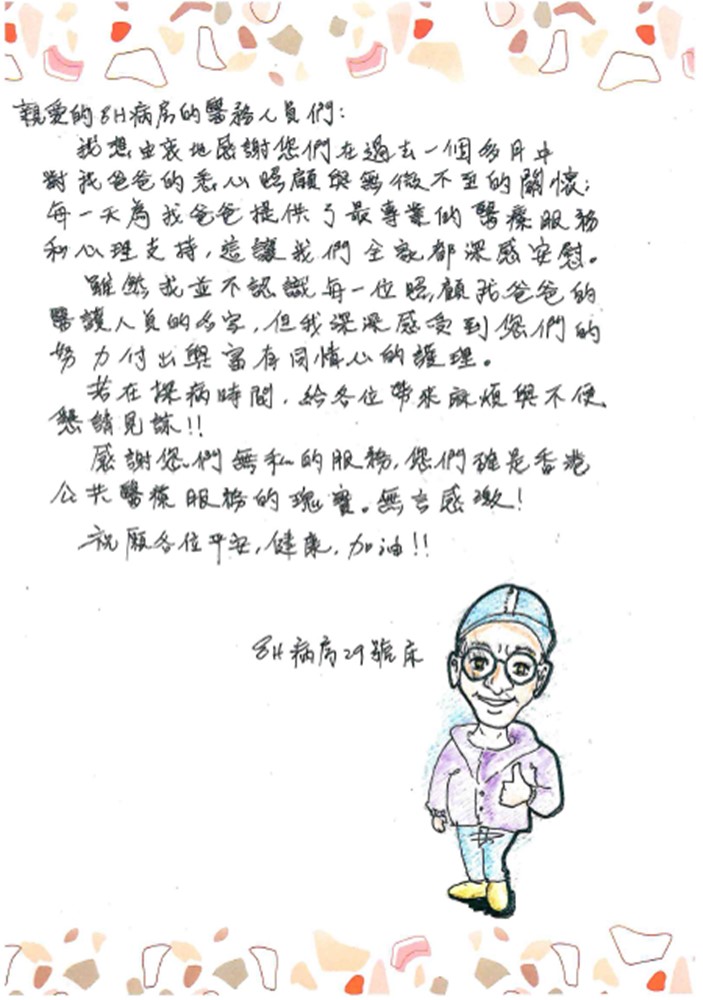 親愛的8H病房的醫務人員們：
我想由衷地感謝您們在過去一個多月中
對我爸爸的悉心照顧與無微不至的關懷；
每一天為我爸爸提供了最專業的醫療服務
和心理支持，這讓我們全家都深感安慰。
雖然我並不認識每一位照顧我爸爸的
醫護人員的名字，但我深深感受到您們的
努力付出與富有同情心的護理。
若在探病時間，給各位帶來麻煩與不便，
懇請見諒！！
感謝您們無私的服務，您們確是香港
公共醫療服務的瑰寶。無言感激！
祝願各位平安，健康，加油！！
8H病房29號床